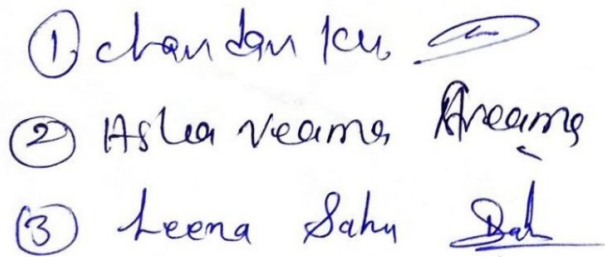 ① chandan Ku.
② Asha Veama Aveama
③ Leena Sahu Sah